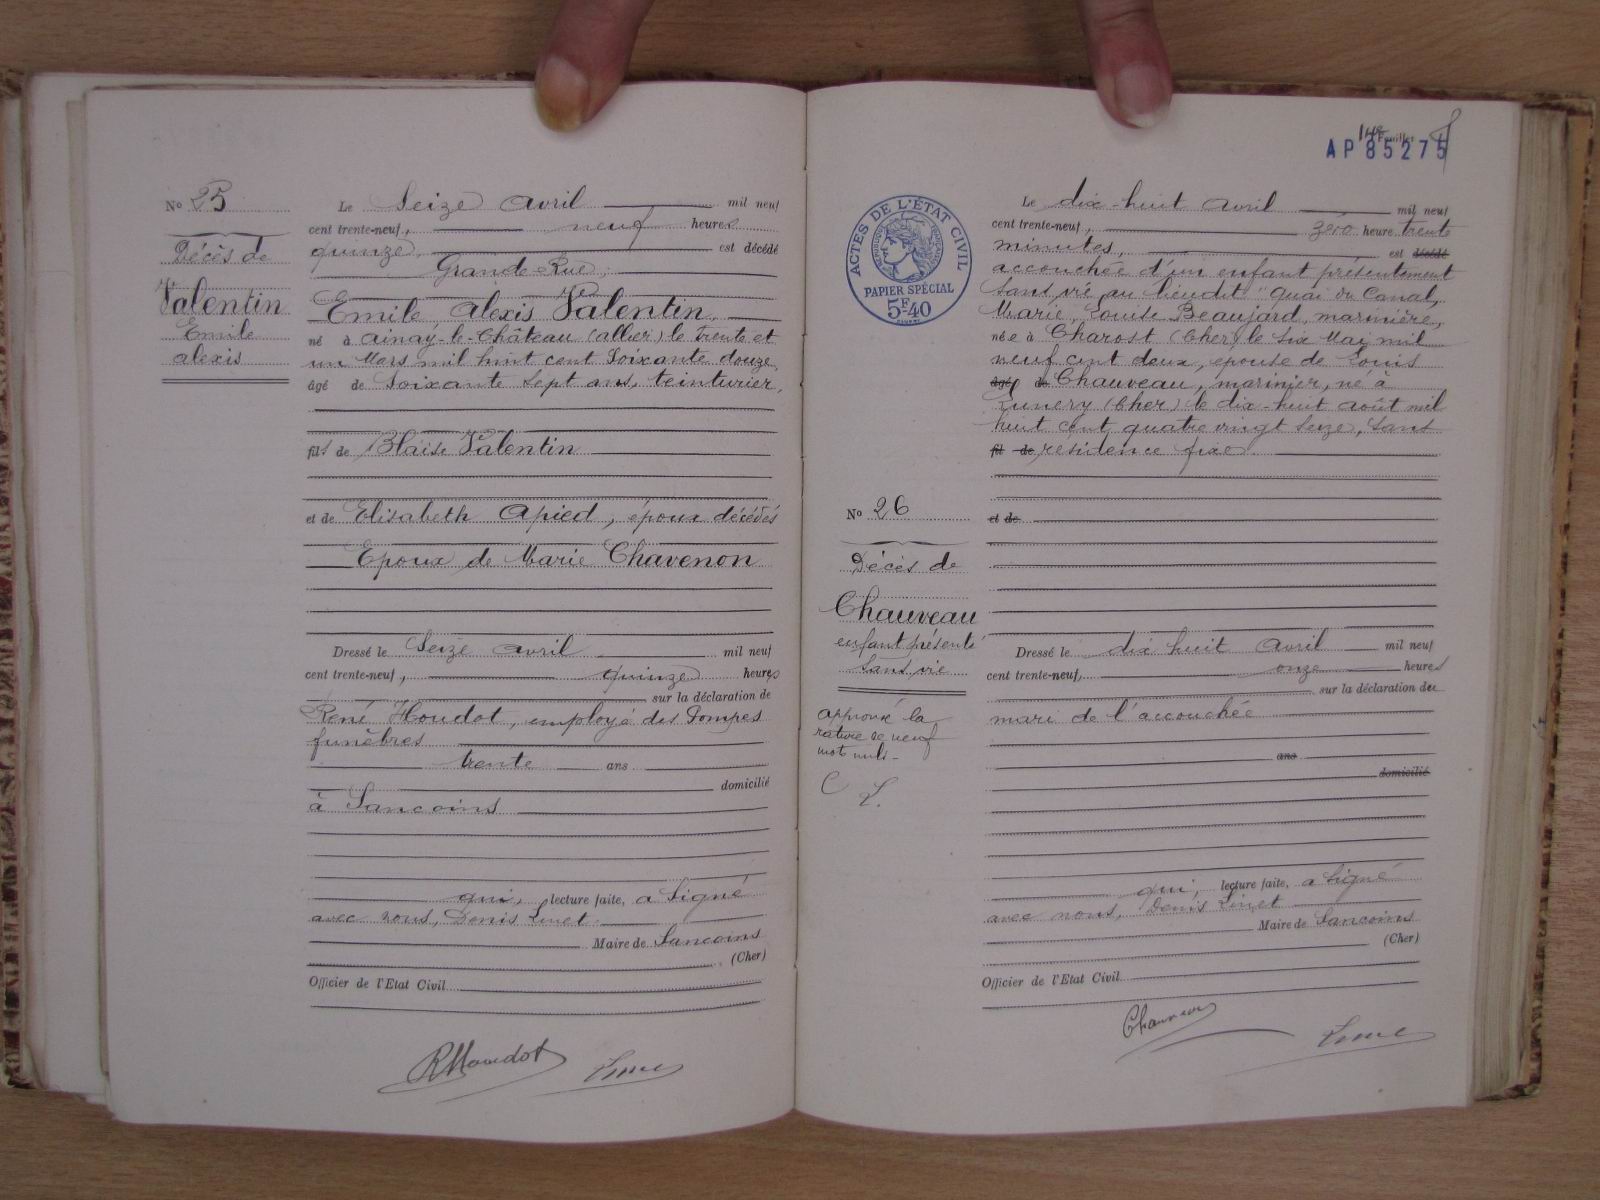 No 25
Décès de
Valentin
Emile
alexis
Le Seize avril mil neuf
cent trente-neuf, neuf heures
quinze est décédé
Grande-Rue,
Emile Alexis Valentin,
né à ainay-le-Château (allier) le trente et
un Mars mil huit cent soixante douze,
âgé de Soixante Sept ans, teinturier,
fils de Blaise Valentin
et de Elisabeth Apied, époux décédés
Epoux de Marie Chavenon
Dressé le Seize avril mil neuf
cent trente-neuf, quinze heures
sur la déclaration de
René Houdot, employé des Pompes
funèbres
trente ans
domicilié
à Sancoins
qui, lecture faite, a Signé
avec nous, Denis Linet
Maire de Sancoins
(Cher)
Officier de l'Etat Civil
RHoudot
14e Feuillet
AP 85275
ACTES DE L'ÉTAT CIVIL
RÉPUBLIQUE FRANÇAISE
PAPIER SPÉCIAL
5F40
Le dix-huit avril mil neuf
cent trente-neuf, zéro heure trente
minutes, est décédé
accouchée d'un enfant présentement
sans vie au lieudit "Quai du Canal,
Marie, Louise Beaujard, marinière,
née à Charost (Cher) le Six Mai mil
neuf cent deux, épouse de Louis
âgé de Chauveau, marinier, né à
Lunery (Cher) le dix-huit août mil
huit cent quatre vingt seize, sans
fil de résidence fixe
No 26
et de
Décès de
Chauveau
enfant présenté
sans vie
Dressé le dix huit avril mil neuf
cent trente-neuf, onze heures
sur la déclaration du
approuvé la
rature de neuf
mots nuls
C L.
mari de l'accouchée
ans
domicilié
qui, lecture faite, a Signé
avec nous, Denis Linet
Maire de Sancoins
(Cher)
Officier de l'Etat Civil
Chauveau